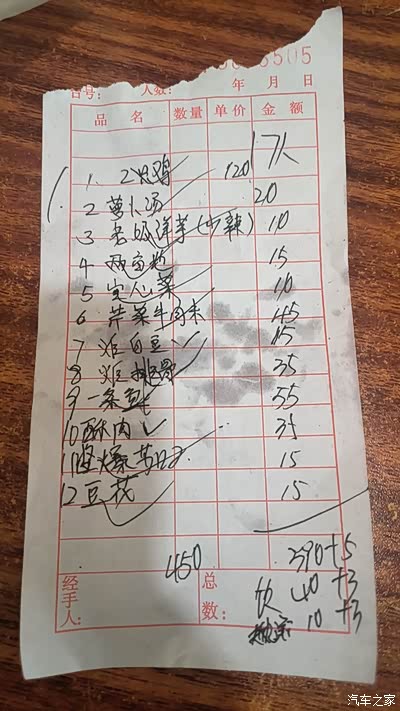 505
台号: 人数: 年 月 日
品 名 数量 单价 金 额
17人
1. 鸡 120
2 萝卜汤 20
3 老奶洋芋(不辣) 10
4 15
5 菜 10
6 芹菜牛肉末 45
7 炸白豆 15
8 炸排骨 35
9 一条鱼 55
10 酥肉 35
11 爆 15
12 豆花 15
450
总数: 390+5
饮 40 +3
10 +3
经手人:
汽车之家